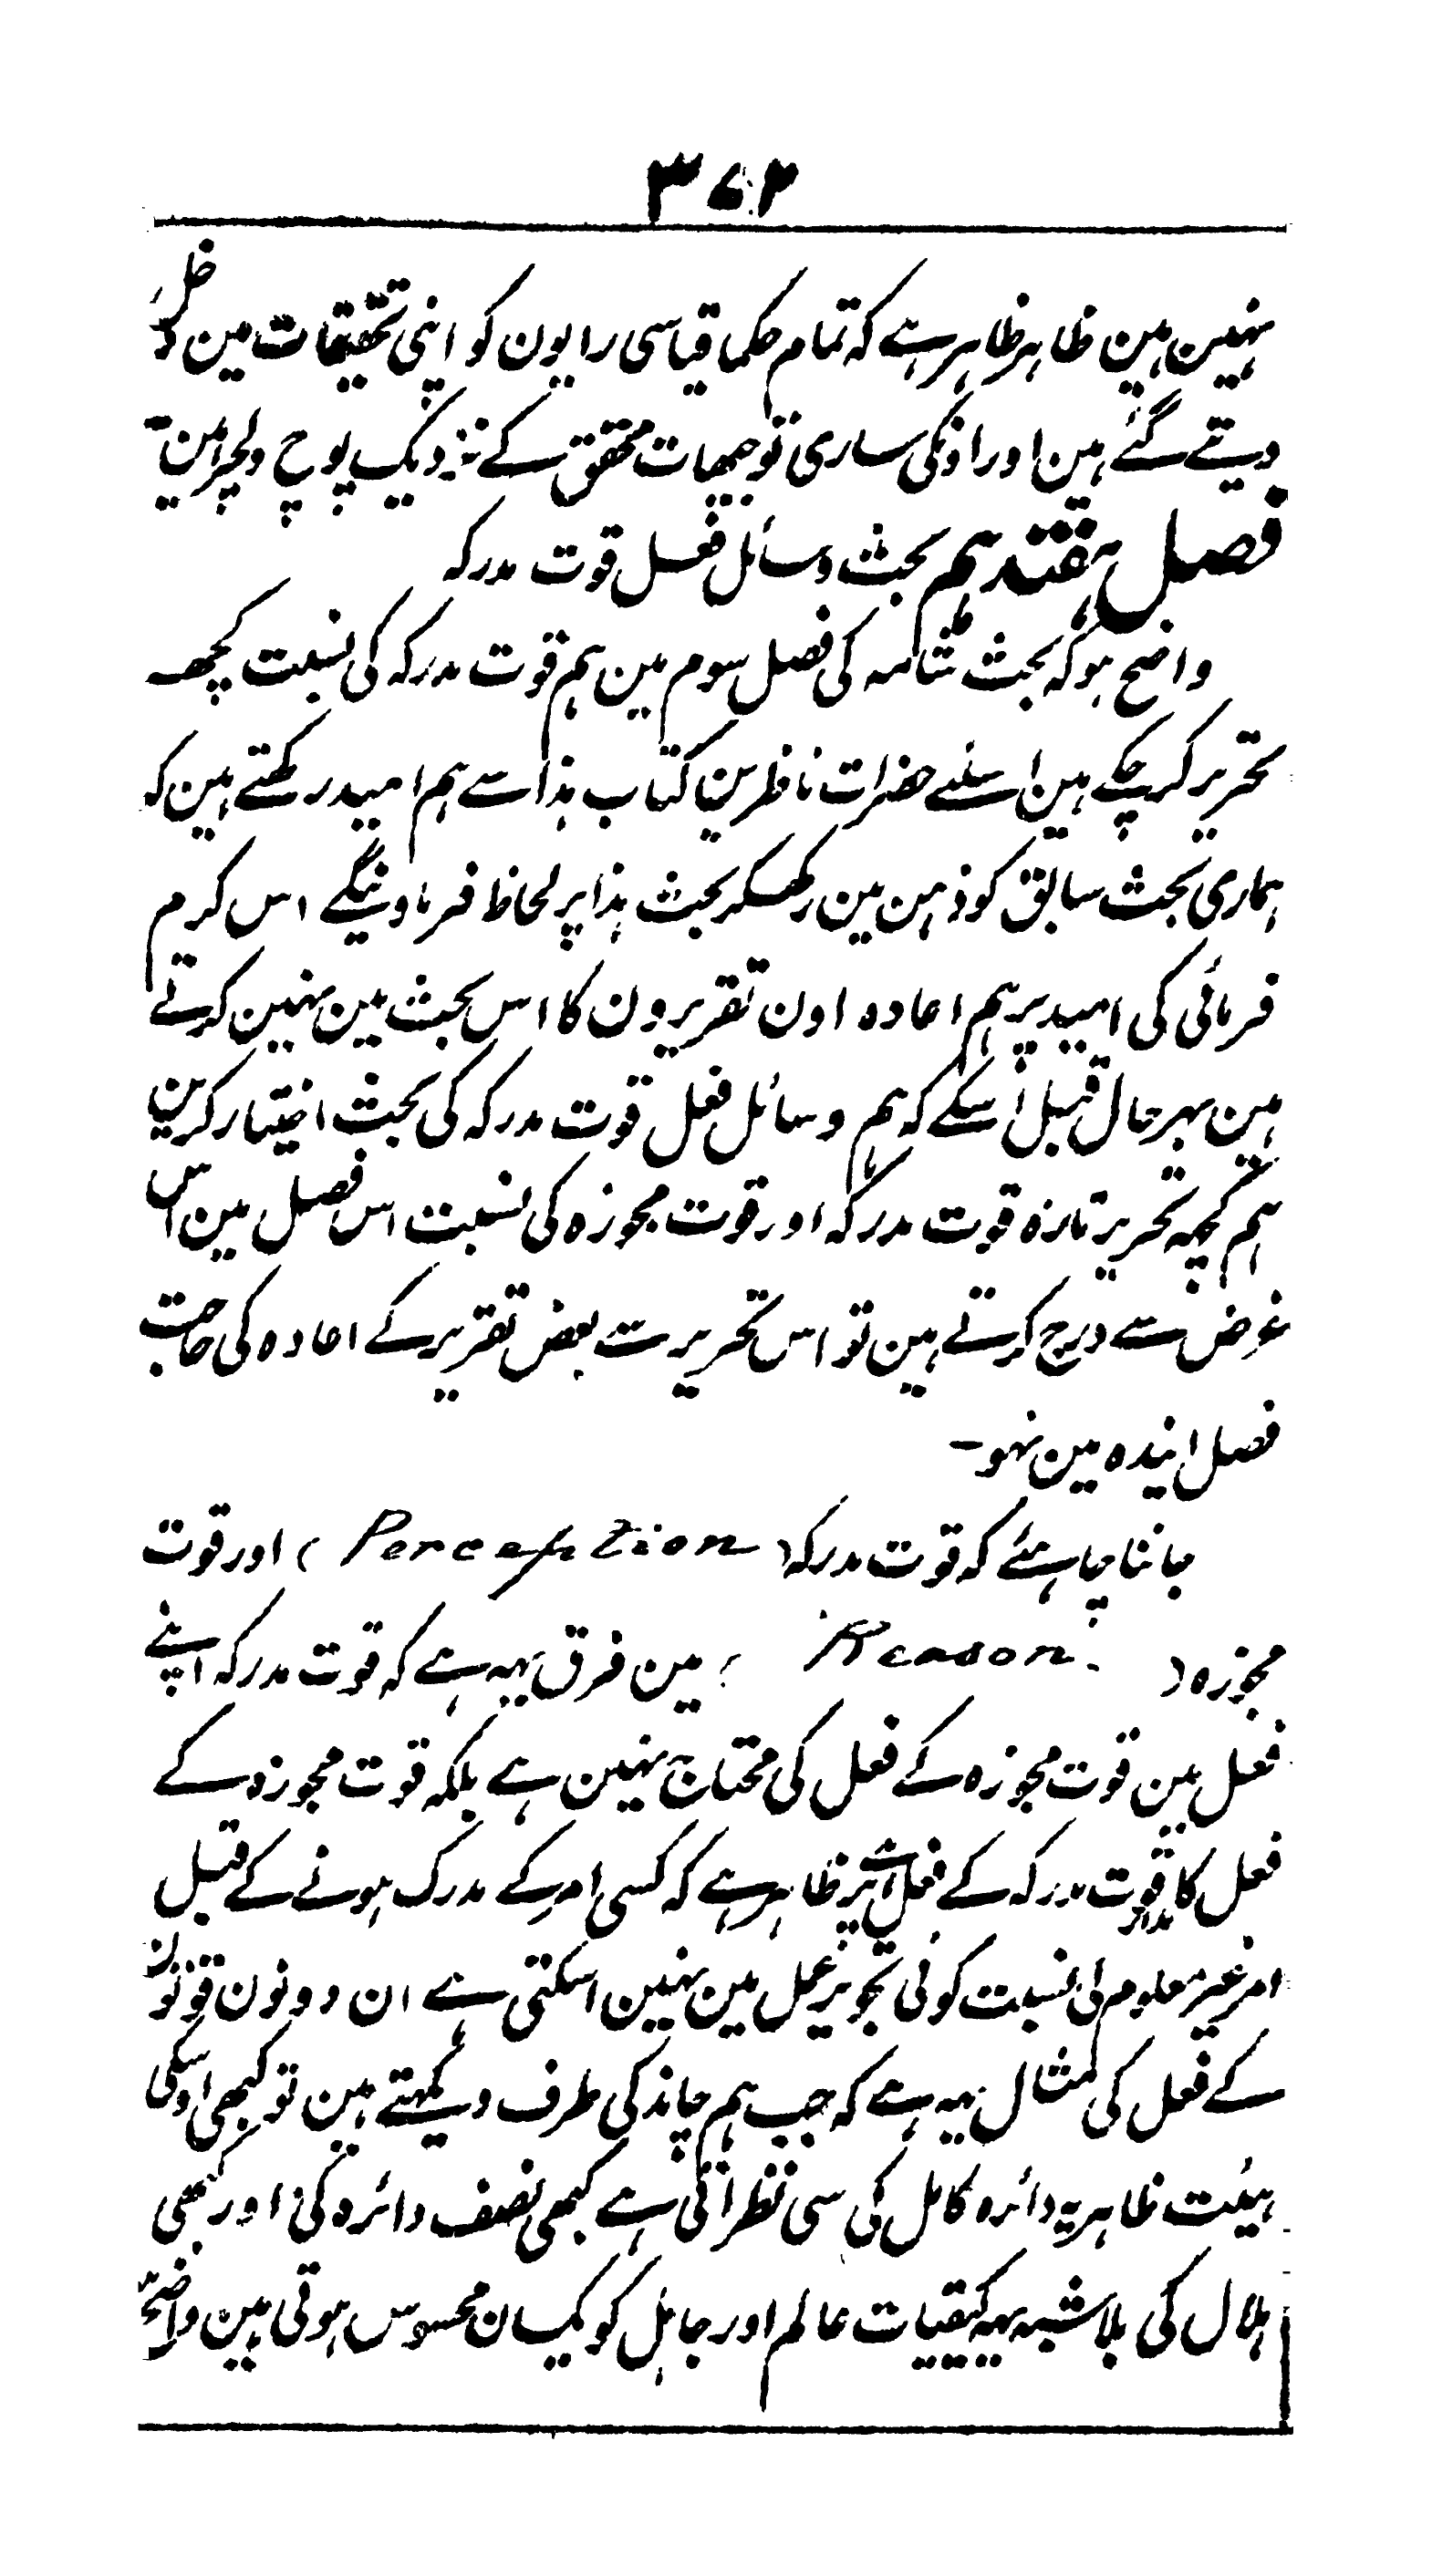 ۳۷۲
نہین ہین ظاہر ظاہر ہے کہ تمام حکما قیاسی رایون کو اپنی تحقیقات مین دخل
دیتے گئے ہین اور اونکی ساری توجیہات محقق کے نزدیک پوچ ولچر ہین ۔
فصل ہفتدہم بحث وسائل فعل قوت مدرکہ
واضح ہو کہ بحث ثامنہ کی فصل سوم مین ہم قوت مدرکہ کی نسبت کچھ
تحریر کر چکے ہین اسلئے حضرات ناظرین کتاب ہذا سے ہم امید رکھتے ہین کہ
ہماری بحث سابق کو ذہن مین رکھکر بحث ہذا پر لحاظ فرماوینگے اس کرم
فرمائی کی امید پر ہم اعادہ اون تقریرون کا اس بحث مین نہین کرتے
ہین بہرحال قبل اسکے کہ ہم وسائل فعل قوت مدرکہ کی بحث اختیار کرین
ہم کچہ تحریر تازہ قوت مدرکہ اور قوت مجوزہ کی نسبت اس فصل مین اس
غرض سے درج کرتے ہین تو اس تحریر سے بعض تقریر کے اعادہ کی حاجت
فصل ایندہ مین نہو ۔
جاننا چاہئے کہ قوت مدرکہ ( Perception ) اور قوت
مجوزہ ( Reason ) مین فرق یہہ ہے کہ قوت مدرکہ اپنے
فعل مین قوت مجوزہ کے فعل کی محتاج نہین ہے بلکہ قوت مجوزہ کے
فعل کا مدار قوت مدرکہ کے فعل پر ہے ظاہر ہے کہ کسی امر کے مدرک ہونے کے قبل
امر غیر معلوم کی نسبت کوئی تجویز عمل مین نہین اسکتی ہے ان دونون قوتون
کے فعل کی مثال یہہ ہے کہ جب ہم چاند کی طرف دیکہتے ہین تو کبھی اوسکی
ہیئت ظاہریہ دائرہ کامل کی سی نظر اتی ہے کبھی نصف دائرہ کی اور کبھی
ہلال کی بلاشبہہ یہہ کیفیات عالم اور جاہل کو یکسان محسوس ہوتی ہین واضح